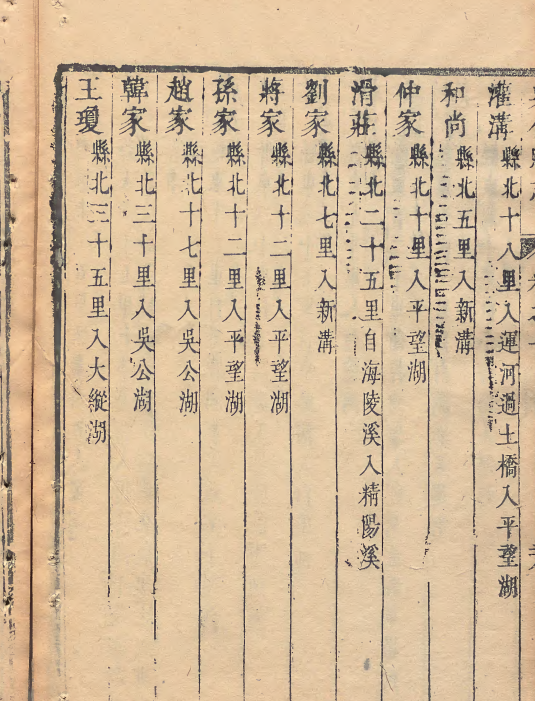 灌溝縣北十八里入運河過土橋入平望湖
和尚縣北五里入新溝
仲家縣北十里入平望湖
滑莊縣北二十五里自海陵溪入精陽溪
劉家縣北七里入新溝
蔣家縣北十二里入平望湖
孫家縣北十二里入平望湖
趙家縣北十七里入吳公湖
韓家縣北三十里入吳公湖
王瓊縣北三十五里入大縱湖